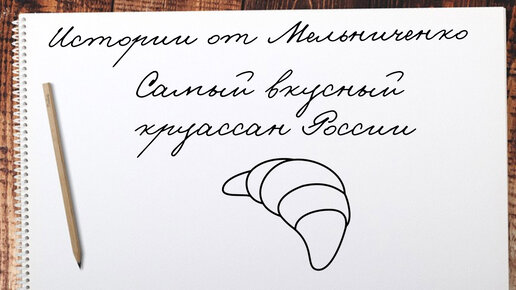 Истории от Мельниченко
Самый вкусный
круассан России